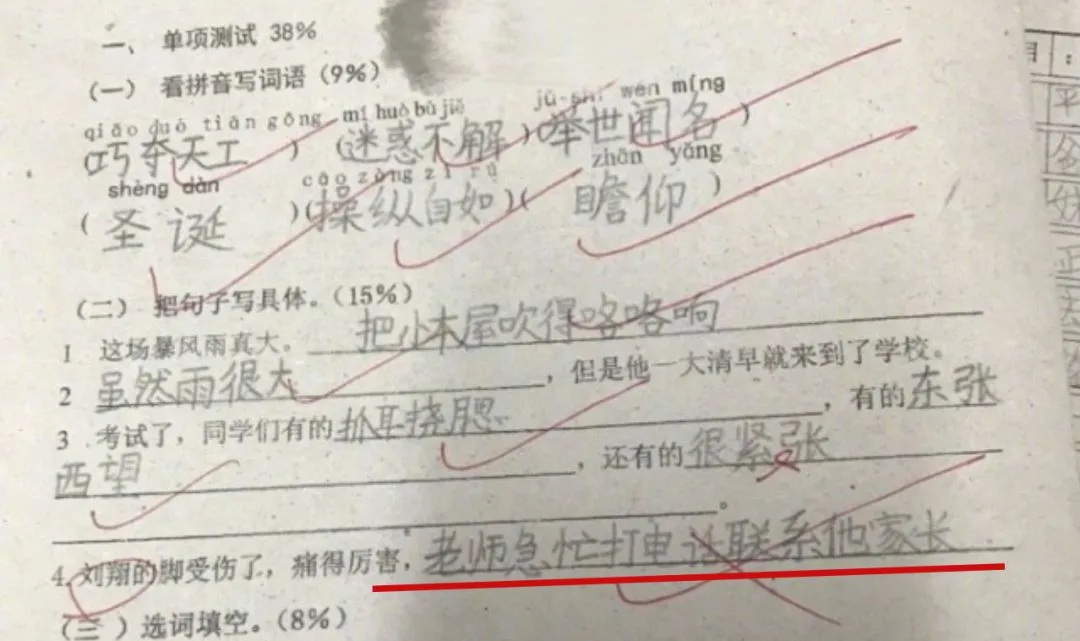 一、单项测试 38%
（一）看拼音写词语（9%）
qiǎo duó tiān gōng mí huò bù jiě jǔ shì wén míng
（巧夺天工）（迷惑不解）（举世闻名）
shèng dàn cāo zòng zì rú zhān yǎng
（圣诞）（操纵自如）（瞻仰）
（二）把句子写具体。（15%）
1 这场暴风雨真大。把小木屋吹得咯咯响
2 虽然雨很大，但是他一大清早就来到了学校。
3．考试了，同学们有的抓耳挠腮，有的东张
西望，还有的很紧张
。
4.刘翔的脚受伤了，痛得厉害，老师急忙打电话联系他家长
（三）选词填空。（8%）